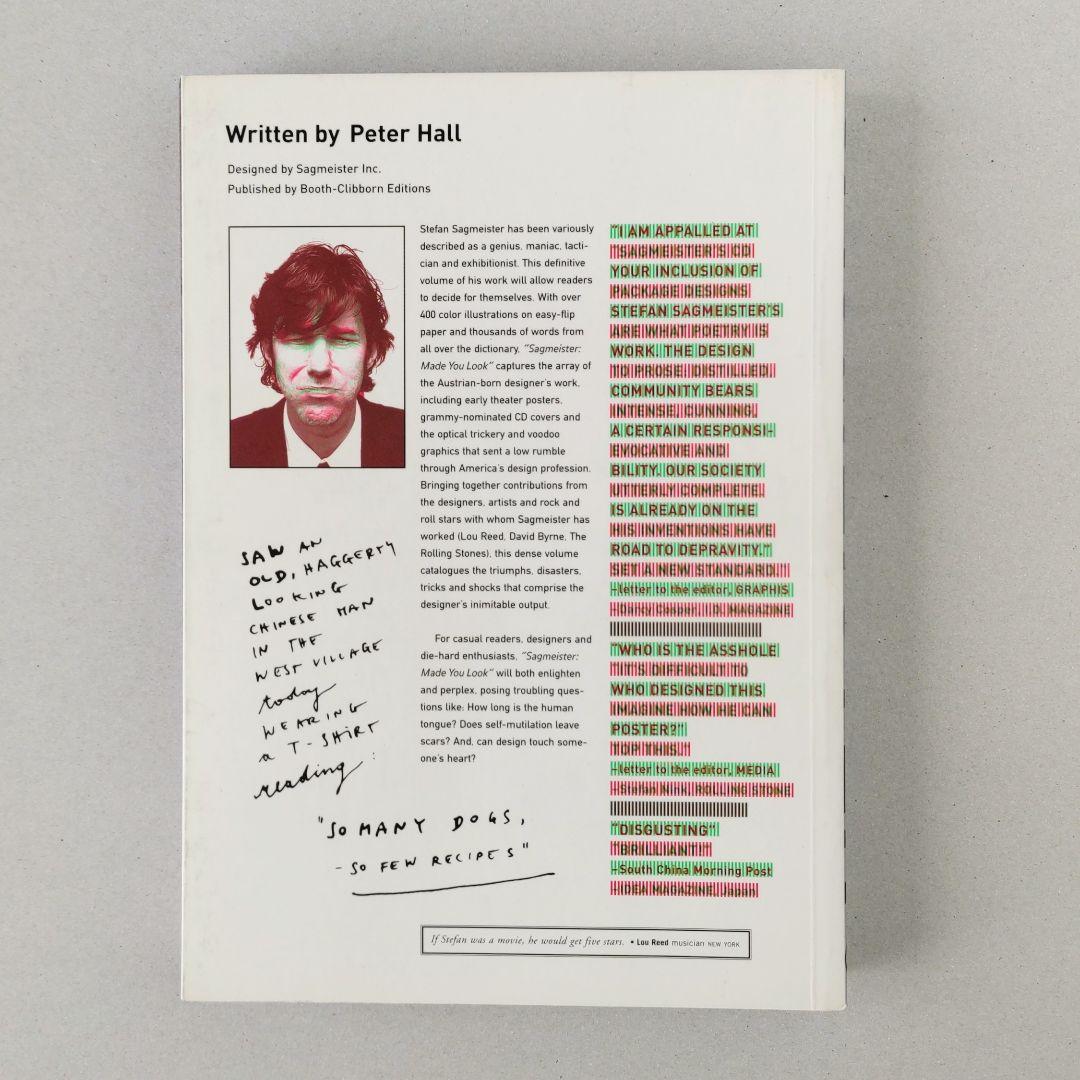 Written by Peter Hall
Designed by Sagmeister Inc.
Published by Booth-Clibborn Editions
Stefan Sagmeister has been variously
described as a genius, maniac, tacti-
cian and exhibitionist. This definitive
volume of his work will allow readers
to decide for themselves. With over
400 color illustrations on easy-flip
paper and thousands of words from
all over the dictionary, "Sagmeister:
Made You Look" captures the array of
the Austrian-born designer's work,
including early theater posters,
grammy-nominated CD covers and
the optical trickery and voodoo
graphics that sent a low rumble
through America's design profession.
Bringing together contributions from
the designers, artists and rock and
roll stars with whom Sagmeister has
worked (Lou Reed, David Byrne, The
Rolling Stones), this dense volume
catalogues the triumphs, disasters,
tricks and shocks that comprise the
designer's inimitable output.
For casual readers, designers and
die-hard enthusiasts, "Sagmeister:
Made You Look" will both enlighten
and perplex, posing troubling ques-
tions like: How long is the human
tongue? Does self-mutilation leave
scars? And, can design touch some-
one's heart?
"I AM APPALLED AT
"SAGMEISTER'S CD
YOUR INCLUSION OF
PACKAGE DESIGNS
STEFAN SAGMEISTER'S
ARE WHAT POETRY IS
WORK. THE DESIGN
TO PROSE. DISTILLED,
COMMUNITY BEARS
INTENSE, CUNNING,
A CERTAIN RESPONSI-
EVOCATIVE AND
BILITY. OUR SOCIETY
UTTERLY COMPLETE.
IS ALREADY ON THE
HIS INVENTIONS HAVE
ROAD TO DEPRAVITY."
SET A NEW STANDARD."
–letter to the editor, GRAPHIS
–Darcy Cosper, I.D. MAGAZINE
"WHO IS THE ASSHOLE
"IT'S DIFFICULT TO
WHO DESIGNED THIS
IMAGINE HOW HE CAN
POSTER?"
TOP THIS."
–letter to the editor, MEDIA
–Stefan Nink, ROLLING STONE
"DISGUSTING"
"BRILLIANT!"
–South China Morning Post
–IDEA MAGAZINE, Japan
SAW AN
OLD, HAGGERTY
LOOKING
CHINESE MAN
IN THE
WEST VILLAGE
today
WEARING
a T-SHIRT
reading:
"SO MANY DOGS,
- SO FEW RECIPES"
If Stefan was a movie, he would get five stars. • Lou Reed musician NEW YORK